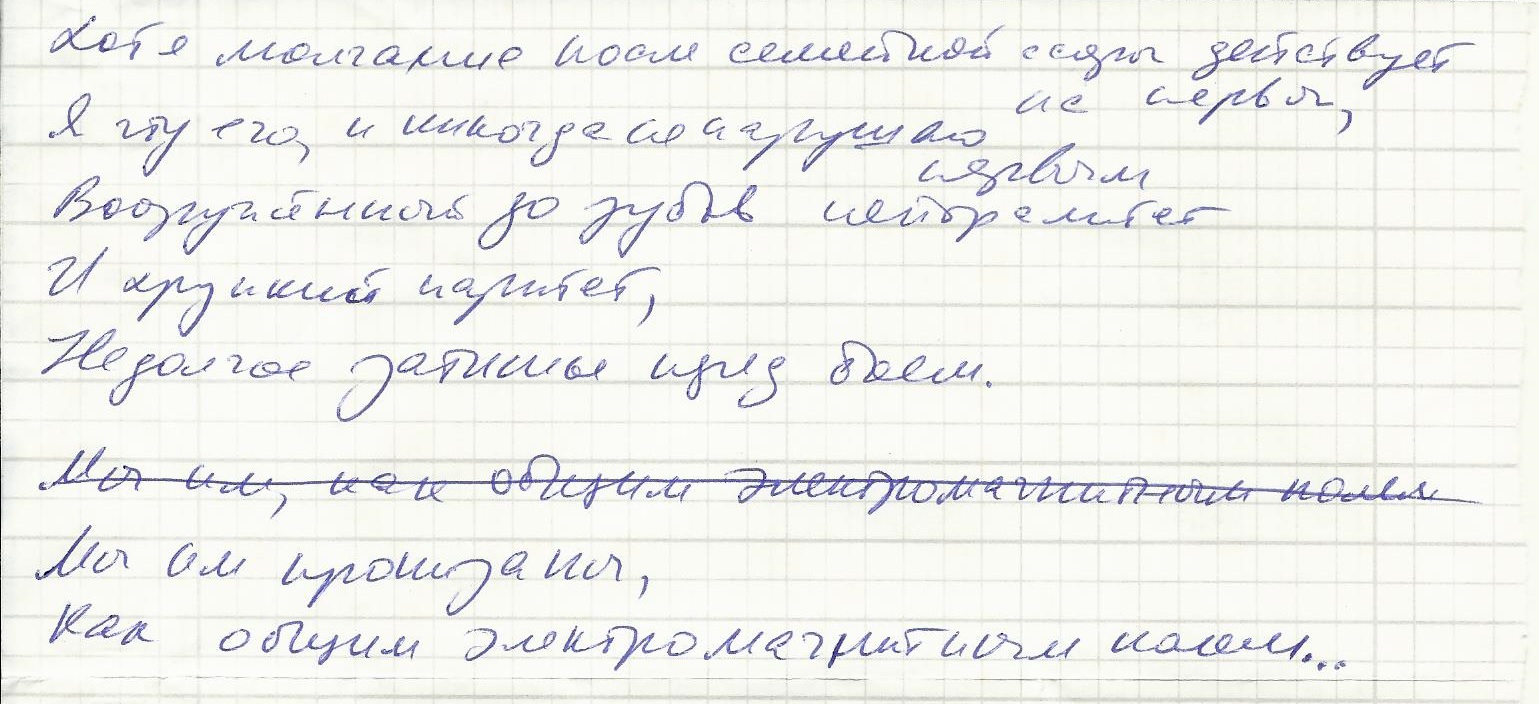 Хотя молчание после семейной ссоры действует
на нервы,
Я чту его, и никогда не нарушаю
первым
Вооружённый до зубов нейтралитет
И хрупкий паритет,
Недолгое затишье пред боем.
Мы им, как общим электромагнитным полем
Мы им пронизаны,
Как общим электромагнитным полем...